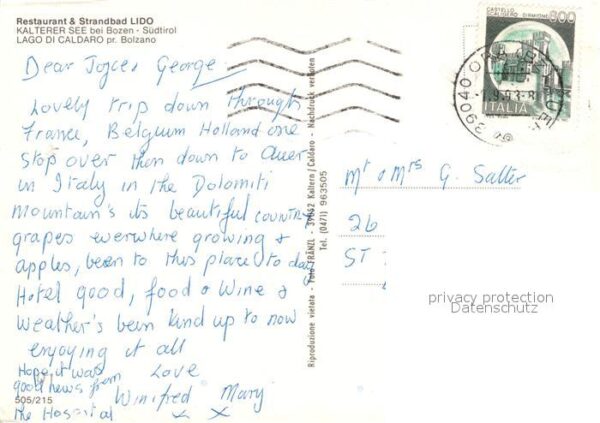 Restaurant & Strandbad LIDO
KALTERER SEE bei Bozen - Südtirol
LAGO DI CALDARO pr. Bolzano
Dear Joyce, George
Lovely trip down through
France, Belgium Holland one
Stop over then down to Auer
in Italy in the Dolomiti
Mountain's its beautiful country
grapes everwhere growing &
apples, been to this place to day
Hotel good, food & wine &
weather's been kind up to now
enjoying it all
Hope it was
good news from
the Hospital
Love
Winifred Mary
x X
505/215
Riproduzione vietata - Foto FRÄNZL - 39052 Kaltern/Caldaro - Nachdruck verboten
Tel. (0471) 963505
CASTELLO SCALIGERO SIRMIONE 800
ITALIA
39040
Mr & Mrs G. Salter
26
ST
privacy protection
Datenschutz